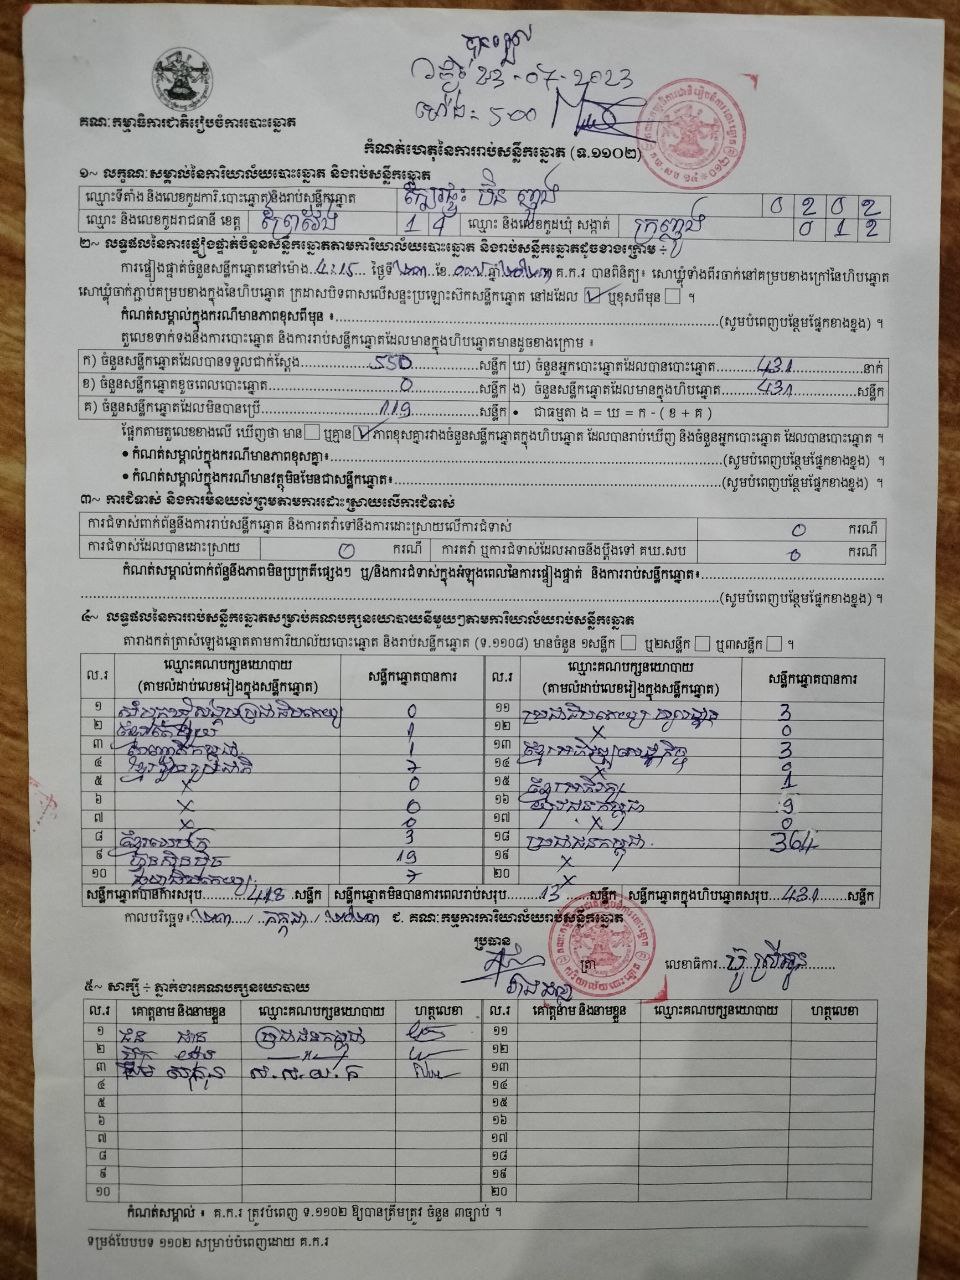 បានទទួល
ថ្ងៃទី 23-07-2023
ម៉ោង: 5:00
គណៈកម្មាធិការជាតិរៀបចំការបោះឆ្នោត
កំណត់ហេតុនៃការរាប់សន្លឹកឆ្នោត (ទ.១១០២)
១~ លក្ខណៈសម្គាល់នៃការិយាល័យបោះឆ្នោត និងរាប់សន្លឹកឆ្នោត
ឈ្មោះទីតាំង និងលេខកូដការិ.បោះឆ្នោត/និងរាប់សន្លឹកឆ្នោត 0 2 0 2
ឈ្មោះ និងលេខកូដរាជធានី ខេត្ត ព្រៃវែង 1 4 ឈ្មោះ និងលេខកូដឃុំ សង្កាត់ 0 1 2
២~ លទ្ធផលនៃការផ្ទៀងផ្ទាត់ចំនួនសន្លឹកឆ្នោតតាមការិយាល័យបោះឆ្នោត និងរាប់សន្លឹកឆ្នោតដូចខាងក្រោម ÷
ការផ្ទៀងផ្ទាត់ចំនួនសន្លឹកឆ្នោតនៅម៉ោង 4:15 ថ្ងៃទី ២៣ ខែ ០៧ ឆ្នាំ ២០២៣ គ.ក.រ បានពិនិត្យ៖ សោឃ្លុំទាំងពីរចាក់នៅគម្របខាងក្រៅនៃហិបឆ្នោត
សោឃ្លុំចាក់ភ្ជាប់គម្របខាងក្នុងនៃហិបឆ្នោត ក្រដាសបិទពាសលើសន្ទះប្រឡោះស៊កសន្លឹកឆ្នោត នៅដដែល ☑ ឬខុសពីមុន ☐ ។
កំណត់សម្គាល់ក្នុងករណីមានភាពខុសពីមុន ៖ (សូមបំពេញបន្ថែមផ្នែកខាងខ្នង) ។
តួលេខទាក់ទងនឹងការបោះឆ្នោត និងការរាប់សន្លឹកឆ្នោតដែលមានក្នុងហិបឆ្នោតមានដូចខាងក្រោម ៖
ក) ចំនួនសន្លឹកឆ្នោតដែលបានទទួលជាក់ស្ដែង 550 សន្លឹក ឃ) ចំនួនអ្នកបោះឆ្នោតដែលបានបោះឆ្នោត 431 នាក់
ខ) ចំនួនសន្លឹកឆ្នោតខូចពេលបោះឆ្នោត 0 សន្លឹក ង) ចំនួនសន្លឹកឆ្នោតដែលមានក្នុងហិបឆ្នោត 431 សន្លឹក
គ) ចំនួនសន្លឹកឆ្នោតដែលមិនបានប្រើ 119 សន្លឹក • ជាធម្មតា ង = ឃ = ក - ( ខ + គ )
ផ្អែកតាមតួលេខខាងលើ ឃើញថា មាន ☐ ឬគ្មាន ☑ ភាពខុសគ្នារវាងចំនួនសន្លឹកឆ្នោតក្នុងហិបឆ្នោត ដែលបានរាប់ឃើញ និងចំនួនអ្នកបោះឆ្នោត ដែលបានបោះឆ្នោត ។
• កំណត់សម្គាល់ក្នុងករណីមានភាពខុសគ្នា៖ (សូមបំពេញបន្ថែមផ្នែកខាងខ្នង) ។
• កំណត់សម្គាល់ក្នុងករណីមានវត្ថុមិនមែនជាសន្លឹកឆ្នោត៖ (សូមបំពេញបន្ថែមផ្នែកខាងខ្នង) ។
៣~ ការជំទាស់ និងការមិនយល់ព្រមតាមការដោះស្រាយលើការជំទាស់
ការជំទាស់ពាក់ព័ន្ធនឹងការរាប់សន្លឹកឆ្នោត និងការតវ៉ាទៅនឹងការដោះស្រាយលើការជំទាស់ 0 ករណី
ការជំទាស់ដែលបានដោះស្រាយ 0 ករណី ការតវ៉ា ឬការជំទាស់ដែលអាចនឹងប្ដឹងទៅ គឃ.សប 0 ករណី
កំណត់សម្គាល់ពាក់ព័ន្ធនឹងភាពមិនប្រក្រតីផ្សេងៗ ឬ/និងការជំទាស់ក្នុងអំឡុងពេលនៃការផ្ទៀងផ្ទាត់ និងការរាប់សន្លឹកឆ្នោត៖
(សូមបំពេញបន្ថែមផ្នែកខាងខ្នង) ។
៤~ លទ្ធផលនៃការរាប់សន្លឹកឆ្នោតសម្រាប់គណបក្សនយោបាយនីមួយៗតាមការិយាល័យរាប់សន្លឹកឆ្នោត
តារាងកត់ត្រាសំឡេងឆ្នោតតាមការិយាល័យបោះឆ្នោត និងរាប់សន្លឹកឆ្នោត (ទ.១១០៨) មានចំនួន ១សន្លឹក ☐ ឬ២សន្លឹក ☐ ឬ៣សន្លឹក ☐ ។
ល.រ ឈ្មោះគណបក្សនយោបាយ (តាមលំដាប់លេខរៀងក្នុងសន្លឹកឆ្នោត) សន្លឹកឆ្នោតបានការ ល.រ ឈ្មោះគណបក្សនយោបាយ (តាមលំដាប់លេខរៀងក្នុងសន្លឹកឆ្នោត) សន្លឹកឆ្នោតបានការ
១ 0 ១១ ប្រជាធិបតេយ្យមូលដ្ឋាន 3
២ 1 ១២ x 0
៣ 1 ១៣ ខ្មែរអភិវឌ្ឍន៍សេដ្ឋកិច្ច 3
៤ ខ្មែររួបរួមជាតិ 7 ១៤ x 0
៥ x 0 ១៥ 1
៦ x 0 ១៦ យុវជនកម្ពុជា 9
៧ x 0 ១៧ x 0
៨ 3 ១៨ ប្រជាជនកម្ពុជា 364
៩ ហ៊្វុនស៊ិនប៉ិច 19 ១៩ x
១០ 7 ២០ x
សន្លឹកឆ្នោតបានការសរុប 418 សន្លឹក សន្លឹកឆ្នោតមិនបានការពេលរាប់សរុប 13 សន្លឹក សន្លឹកឆ្នោតក្នុងហិបឆ្នោតសរុប 431 សន្លឹក
កាលបរិច្ឆេទ ២៣ / កក្កដា / ២០២៣ ជ. គណៈកម្មការការិយាល័យរាប់សន្លឹកឆ្នោត
ប្រធាន
ត្រា លេខាធិការ
៥~ សាក្សី ÷ ភ្នាក់ងារគណបក្សនយោបាយ
ល.រ គោត្តនាម និងនាមខ្លួន ឈ្មោះគណបក្សនយោបាយ ហត្ថលេខា ល.រ គោត្តនាម និងនាមខ្លួន ឈ្មោះគណបក្សនយោបាយ ហត្ថលេខា
១ ប្រជាជនកម្ពុជា ១១
២ —"— ១២
៣ ១៣
៤ ១៤
៥ ១៥
៦ ១៦
៧ ១៧
៨ ១៨
៩ ១៩
១០ ២០
កំណត់សម្គាល់ ៖ គ.ក.រ ត្រូវបំពេញ ទ.១១០២ ឱ្យបានត្រឹមត្រូវ ចំនួន ៣ច្បាប់ ។
ទម្រង់បែបបទ ១១០២ សម្រាប់បំពេញដោយ គ.ក.រ